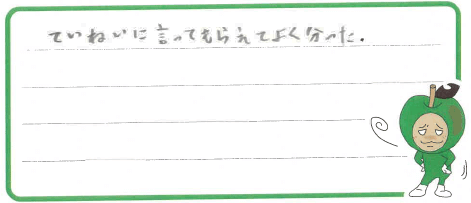 ていねいに言ってもらえてよく分った.